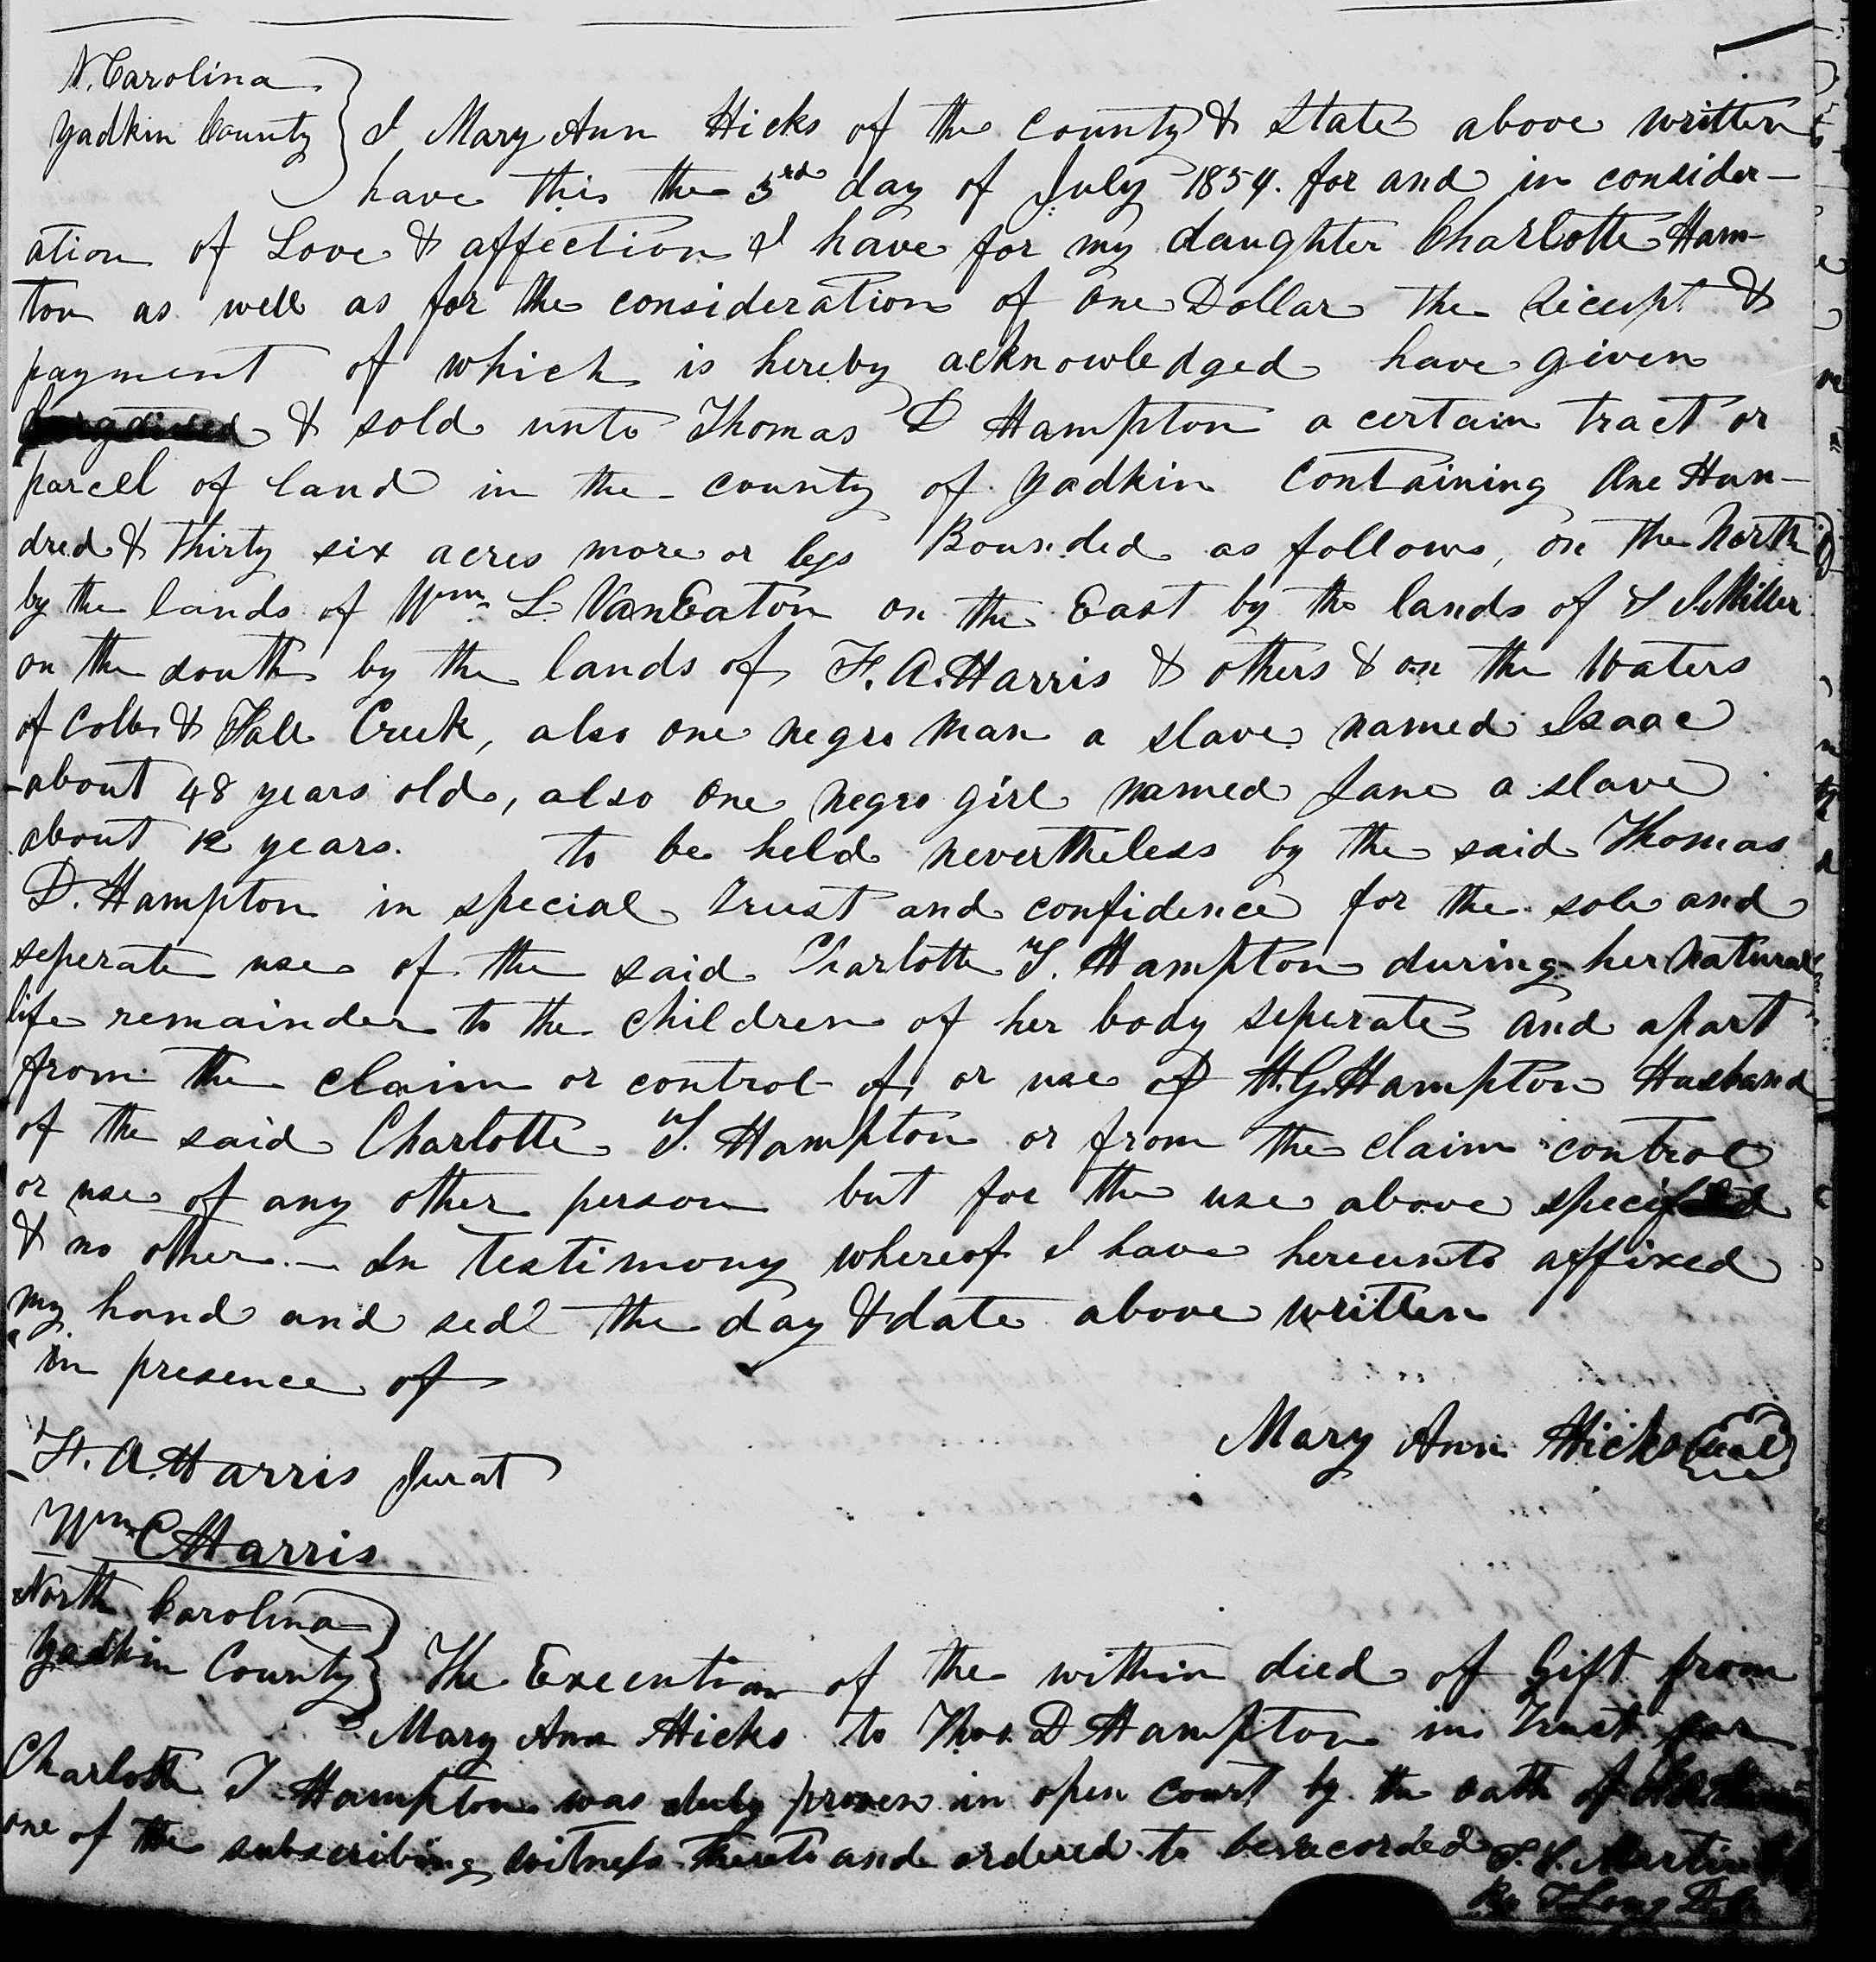 N. Carolina
Yadkin County } I Mary Ann Hicks of the County & State above written
have this the 3rd day of July 1854. for and in consider-
ation of Love & affection I have for my daughter Charlotte Ham-
ton as well as for the consideration of One Dollar the Receipt &
payment of which is hereby acknowledged have given
& sold unto Thomas D Hampton a certain tract or
parcel of land in the county of Yadkin Containing One Hun-
dred & thirty six acres more or less Bounded as follows, on the North
by the lands of Wm. L. VanEaton on the East by the lands of Miller
on the south by the lands of F. A. Harris & others & on the Waters
of Cobb & Fall Creek, also one negro man a slave named Isaac
about 48 years old, also one negro girl named Jane a slave
about 12 years. to be held nevertheless by the said Thomas
D. Hampton in special trust and confidence for the sole and
seperate use of the said Charlotte T. Hampton during her natural
life remainder to the children of her body seperate and apart
from the claim or control of, or use of H. G. Hampton Husband
of the said Charlotte T. Hampton or from the claim control
or use of any other person but for the use above specified
& no other. – In testimony whereof I have hereunto affixed
my hand and seal the day & date above written
in presence of
Mary Ann Hicks (seal)
F. A. Harris Jurat
Wm C Harris
North Carolina
Yadkin County } The Execution of the within deed of Gift from
Mary Ann Hicks to Thos. D Hampton in Trust for
Charlotte T. Hampton was duly proven in open court by the oath of
one of the subscribing witness thereto and ordered to be recorded Martin
By T Long